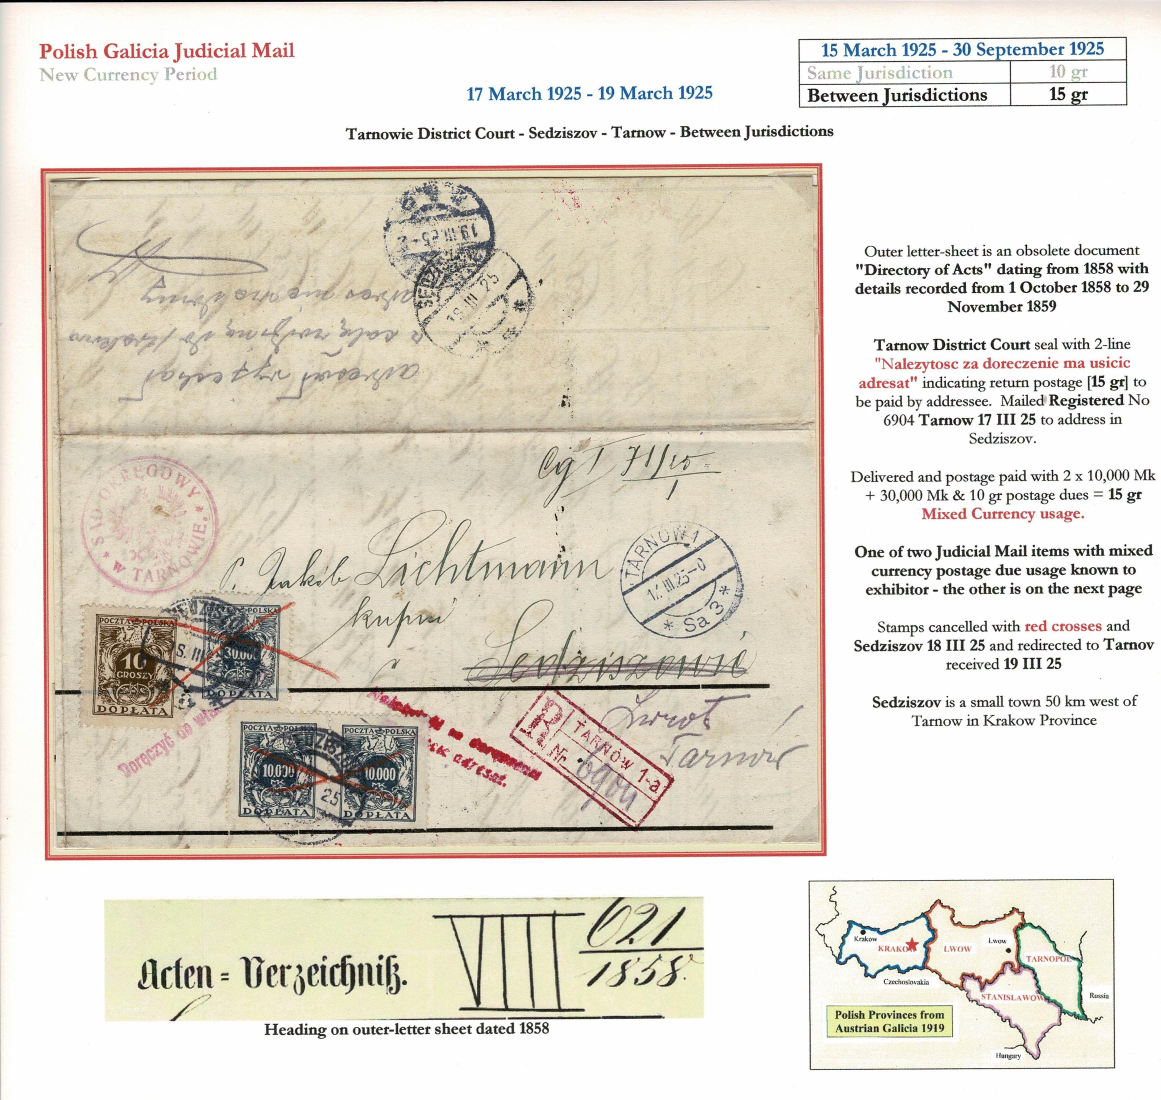 Polish Galicia Judicial Mail
New Currency Period
15 March 1925 - 30 September 1925
Same Jurisdiction 10 gr
Between Jurisdictions 15 gr
17 March 1925 - 19 March 1925
Tarnowie District Court - Sedziszov - Tarnow - Between Jurisdictions
19.III.25-2
18 III 25
Cg I 71/25
1
SĄD OKRĘGOWY
* W TARNOWIE. *
TARNÓW 1
17.III.25-0
* Sa 3 *
P. Jakób Lichtmann
kupiec
Sędziszowie
Zwrot
Tarnów
POCZTA POLSKA
10
GROSZY
DOPŁATA
POCZTA POLSKA
30.000
DOPŁATA
POCZTA POLSKA
10.000
MK
DOPŁATA
POCZTA POLSKA
10.000
MK
DOPŁATA
Doręczyć do
adresat.
R
TARNÓW 1-a
Nr. 6904
Outer letter-sheet is an obsolete document
"Directory of Acts" dating from 1858 with
details recorded from 1 October 1858 to 29
November 1859
Tarnow District Court seal with 2-line
"Nalezytosc za doreczenie ma usicic
adresat" indicating return postage [15 gr] to
be paid by addressee. Mailed Registered No
6904 Tarnow 17 III 25 to address in
Sedziszov.
Delivered and postage paid with 2 x 10,000 Mk
+ 30,000 Mk & 10 gr postage dues = 15 gr
Mixed Currency usage.
One of two Judicial Mail items with mixed
currency postage due usage known to
exhibitor - the other is on the next page
Stamps cancelled with red crosses and
Sedziszov 18 III 25 and redirected to Tarnov
received 19 III 25
Sedziszov is a small town 50 km west of
Tarnow in Krakow Province
Acten = Verzeichniß.
VIII 621
1858.
Heading on outer-letter sheet dated 1858
Krakow
KRAKOW
LWOW
Lwow
TARNOPOL
Czechoslovakia
STANISLAWOW
Russia
Hungary
Polish Provinces from
Austrian Galicia 1919